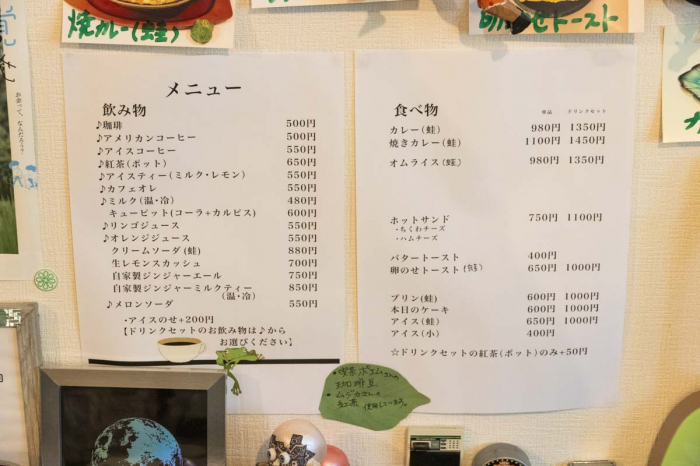 焼カレー(蛙)
メニュー
飲み物
♪珈琲 500円
♪アメリカンコーヒー 500円
♪アイスコーヒー 550円
♪紅茶(ポット) 650円
♪アイスティー(ミルク・レモン) 550円
♪カフェオレ 550円
♪ミルク(温・冷) 480円
キューピット(コーラ+カルピス) 600円
♪リンゴジュース 550円
♪オレンジジュース 550円
クリームソーダ(蛙) 880円
生レモンスカッシュ 700円
自家製ジンジャーエール 750円
自家製ジンジャーミルクティー 850円
(温・冷)
♪メロンソーダ 550円
・アイスのせ+200円
【ドリンクセットのお飲み物は♪から
お選びください】
のせトースト
食べ物
単品 ドリンクセット
カレー(蛙) 980円 1350円
焼きカレー(蛙) 1100円 1450円
オムライス(蛙) 980円 1350円
ホットサンド 750円 1100円
・ちくわチーズ
・ハムチーズ
バタートースト 400円
卵のせトースト(蛙) 650円 1000円
プリン(蛙) 600円 1000円
本日のケーキ 600円 1000円
アイス(蛙) 650円 1000円
アイス(小) 400円
☆ドリンクセットの紅茶(ポット)のみ+50円
・喫茶ポエムさんの
珈琲豆
・ムジカさんの
紅茶 使用しています。